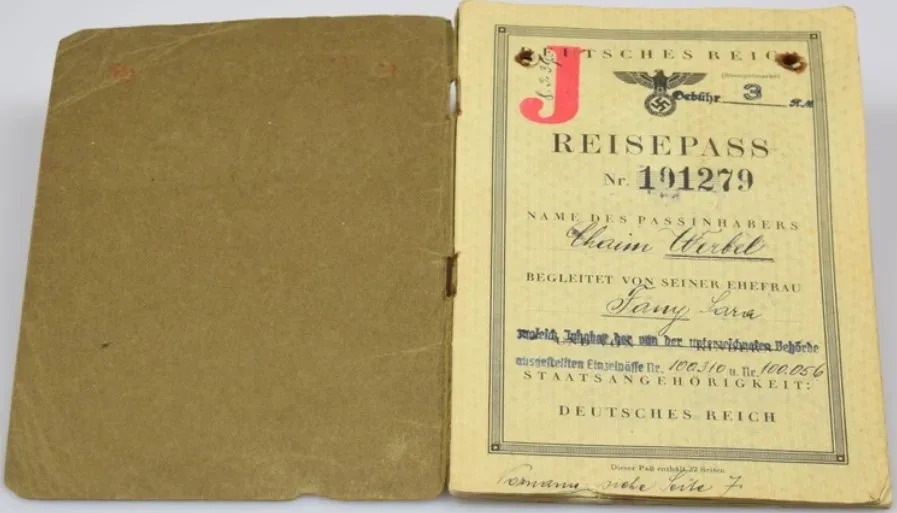 DEUTSCHES REICH
J
8.3.39.
Gebühr 3 RM
REISEPASS
Nr. 191279
NAME DES PASSINHABERS
Chaim Werbel
BEGLEITET VON SEINER EHEFRAU
Fany Sara
zugleich Inhaber der von der unterzeichneten Behörde
ausgestellten Einzelpässe Nr. 100310 u. Nr. 100.056
STAATSANGEHÖRIGKEIT:
DEUTSCHES REICH
Dieser Paß enthält 32 Seiten
siehe Seite 7.